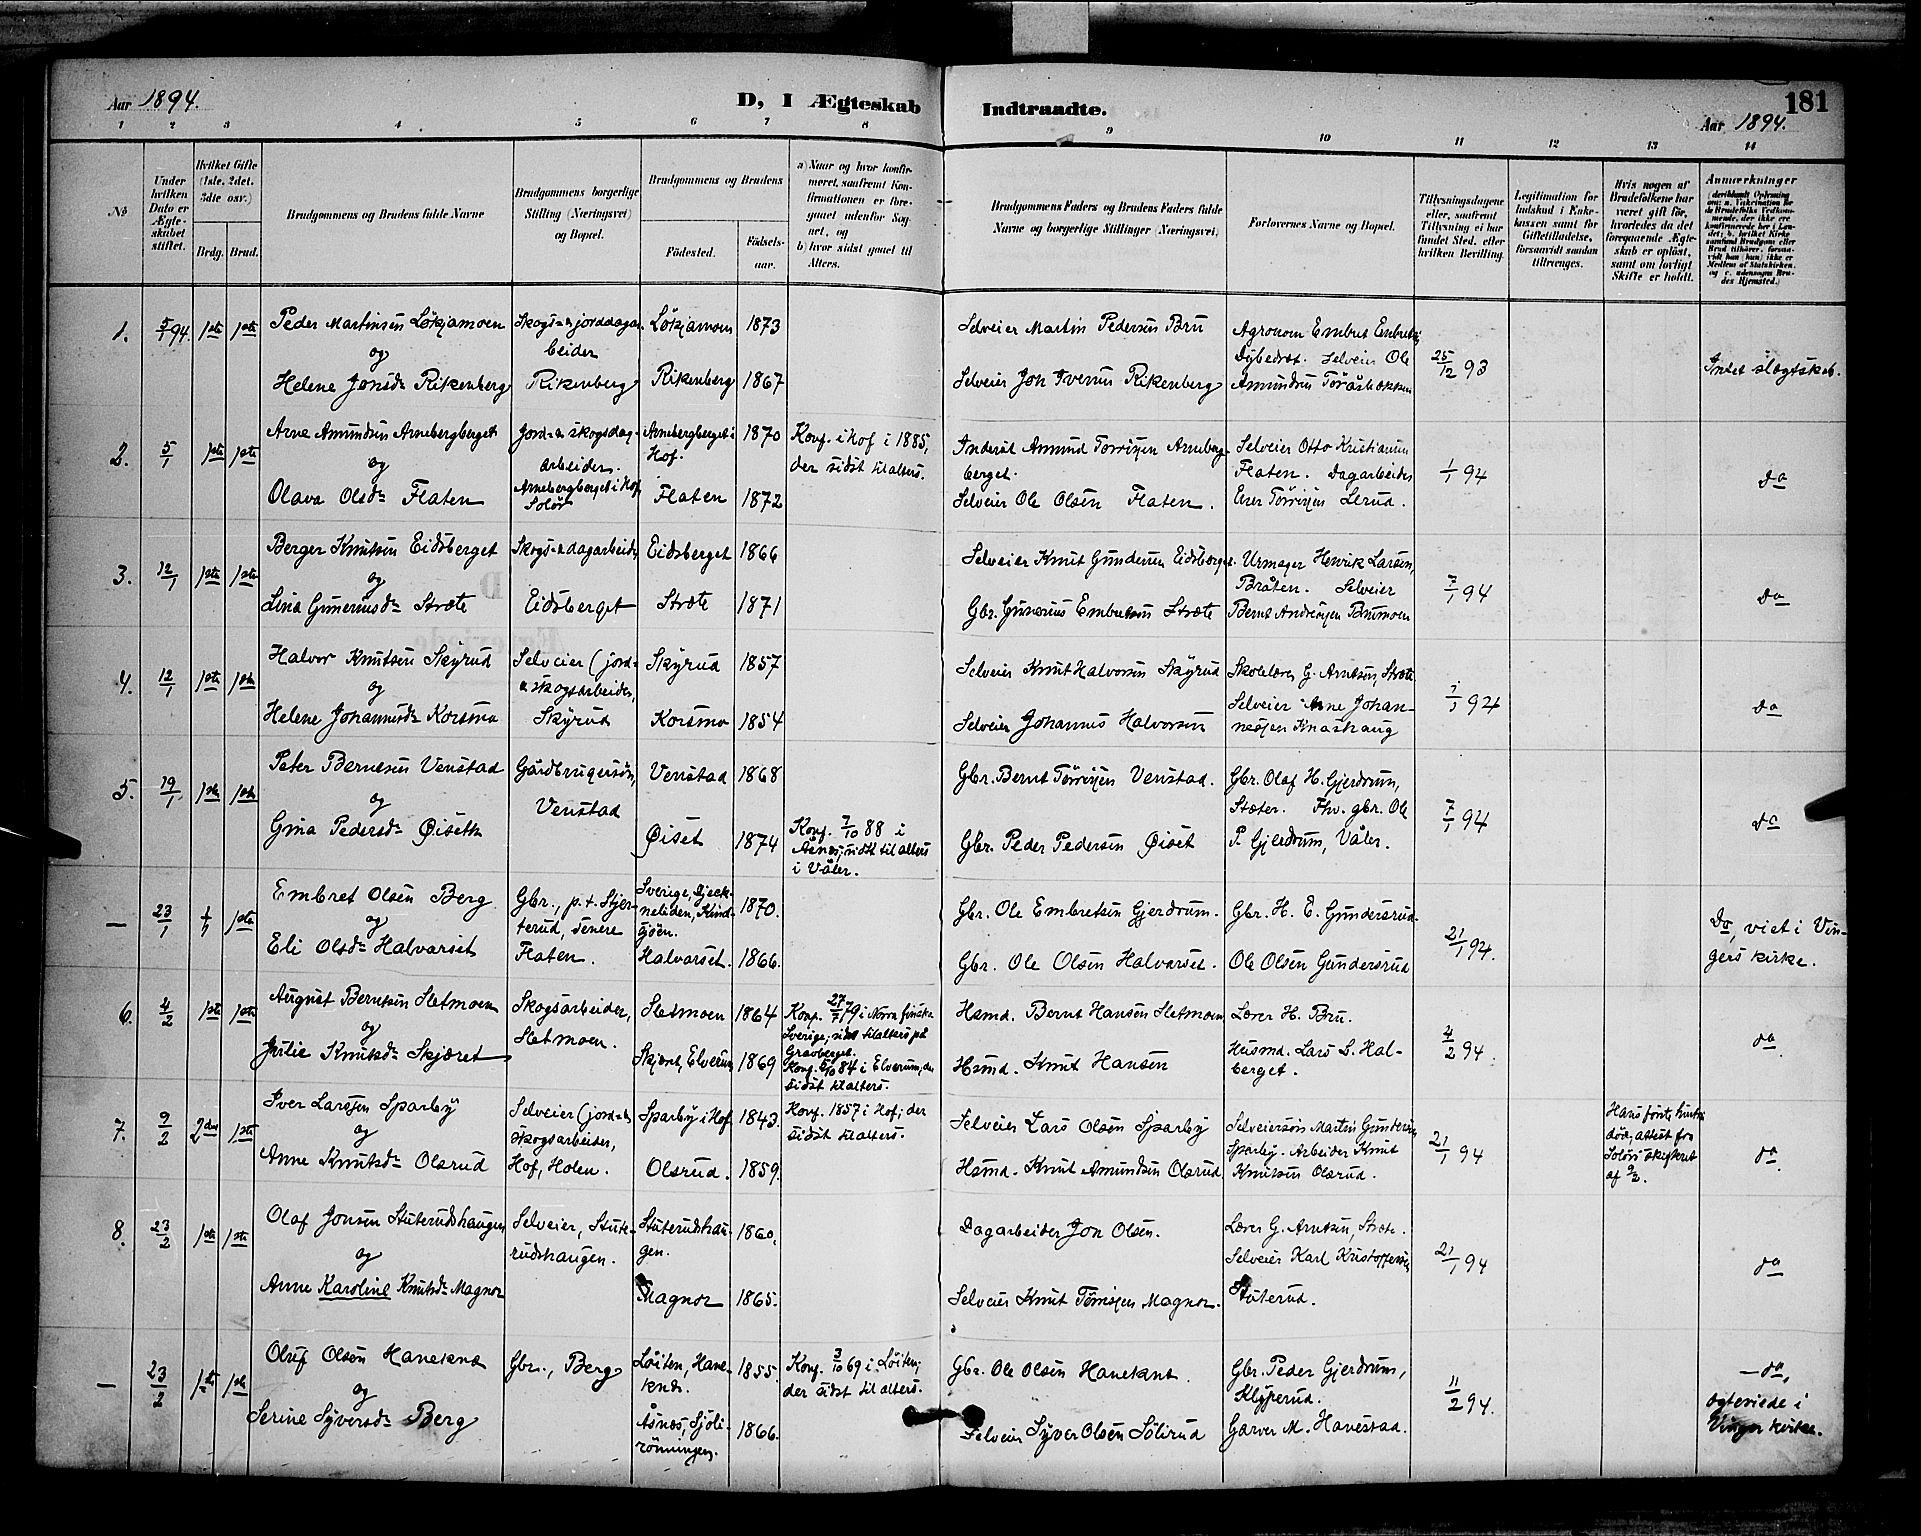 Aar 1894.
D, I Ægteskab Indtraadte.
181
Aar 1894.
1 2 3 4 5 6 7 8 9 10 11 12 13 14
No
Under hvilken Dato er Ægteskabet stiftet.
Hvilket Gifte (1ste, 2det, 3dte osv.)
Brdg. Brud.
Brudgommens og Brudens fulde Navne
Brudgommens borgerlige Stilling (Næringsvei) og Bopæl.
Brudgommens og Brudens
Fødested.
Fødsels-aar.
a) Naar og hvor konfirmeret, saafremt Konfirmationen er foregaaet udenfor Sognet, og
b) hvor sidst gaaet til Alters.
Brudgommens Faders og Brudens Faders fulde Navne og borgerlige Stillinger (Næringsvei)
Forlovernes Navne og Bopæl.
Tillysningsdagene eller, saafremt Tillysning ei har fundet Sted, efter hvilken Bevilling.
Legitimation for Indskud i Enkekassen samt for Giftetilladelse, forsaavidt saadan tiltrænges.
Hvis nogen af Brudefolkene har været gift før, hvorledes da det foregaaende Ægteskab er opløst, samt om lovligt Skifte er holdt.
Anmærkninger
1. 5/1 94. 1ste 1ste
Peder Martinsen Lökjamoen
og
Helene Jonsdr Rikenberg
Skogs- & jorddagarbeider
Rikenberg
Lökjamoen 1873
Rikenberg 1867
Selveier Martin Pedersen Bru
Selveier Jon Iversen Rikenberg
Agronom Embret Embretsen
Selveier Ole
Amundsen
25/12 93
Intet slægtskab.
2. 5/1 1ste 1ste
Arne Amundsen Arnebergberget
og
Olava Olsdr Flaten
Jord- & skogsdagarbeider.
Arnebergberget i Hof, Solør
Arnebergberget i Hof. 1870
Flaten 1872
Konf. i Hof i 1885, der sidst til alters.
Inderst Amund Torrisen Arnebergberget.
Selveier Ole Olsen Flaten.
Selveier Otto Kristiansen
Flaten. Dagarbeider
Törrisen Lerud.
1/1 94
do
3. 12/1 1ste 1ste
Berger Knutsen Eidsberget
og
Lina Gunerusdr Stræte
Skogs- & dagarbeider
Eidsberget
Eidsberget 1866
Stræte 1871
Selveier Knut Gundersen Eidsberget.
Gbr. Gunerius Embretsen Stræte
Urmager Henrik Larsen,
Bråten. Selveier
Bernt Andresen Brumoen
7/1 94
do
4. 12/1 1ste 1ste
Halvor Knutsen Skyrud
og
Helene Johannesdr Korsmo
Selveier (jord- & skogsarbeider,
Skyrud
Skyrud 1857
Korsmo 1854
Selveier Knut Halvorsen Skyrud
Selveier Johannes Halvorsen
Skolelærer G. Arntsen, Stræte
Selveier Arne Johannesen Knashaug
7/1 94
do
5. 19/1 1ste 1ste
Peter Berntsen Venstad
og
Gina Pedersdr Øiseth
Gårdbrugersøn,
Venstad
Venstad 1868
Øiset 1874
Konf. 7/10 88 i Åsnes, sidst til alters i Våler.
Gbr. Bernt Törrisen Venstad.
Gbr. Peder Pedersen Øiset
Gbr. Olaf H. Gjerdrum,
Stæter. Fhv. gbr. Ole
P. Gjerdrum, Våler.
7/1 94
do
— 23/1 1ste
Embret Olsen Berg
og
Eli Olsdr Halvarset
Gbr., p.t. Stjerterud, senere
Flaten.
Sverige, 1870.
Halvarset. 1866.
Gbr. Ole Embretsen Gjerdrum.
Gbr. Ole Olsen Halvarset.
Gbr. H. E. Gundersrud.
Ole Olsen Gundersrud
21/1 94.
Do, viet i Vingers kirke.
6. 4/2 1ste 1ste
August Berntsen Sletmoen
og
Julie Knutsdr Skjæret
Skogsarbeider,
Sletmoen.
Sletmoen 1864
Skjæret, Elverum 1869
Konf. 27/7 79 i Norra finska Sverige; sidst til alters på Gravberget.
Konf. 5/10 84 i Elverum, der sidst til alters.
Hsmd. Bernt Hansen Sletmoen
Hsmd. Knut Hansen
Lærer H. Bru.
Husmd. Lars L. Halberget.
4/2 94.
do
7. 9/2 2den 1ste
Iver Larsen Sparby
og
Anne Knutsdr Olsrud
Selveier (jord- & skogsarbeider,
Hof, Holen.
Sparby i Hof 1843.
Olsrud. 1859.
Konf. 1857 i Hof; der sidst til alters.
Selveier Lars Olsen Sparby
Hsmd. Knut Amundsen Olsrud
Selveiersön Martin Gundersen
Sparby. Arbeider Knut
Knutsen Olsrud.
21/1 94
Hans förste hustru död, attest fra Solör skifteret af 9/2.
do
8. 23/2 1ste 1ste
Olaf Jonsen Stuterudshaugen
og
Anne Karoline Knutsdr Magnor
Selveier, Stuterudshaugen.
Stuterudshaugen. 1860.
Magnor 1865.
Dagarbeider Jon Olsen.
Selveier Knut Törrisen Magnor.
Lærer G. Arntsen, Stræte.
Selveier Karl Kristoffersen
Stuterud.
21/1 94
do
— 23/2 1ste 1ste
Oluf Olsen Haneknæ
og
Serine Syversdr Berg
Gbr., Berg
Löiten, Haneknæ. 1855.
Åsnes, Sjölirönningen. 1866.
Konf. 3/10 69 i Löiten; der sidst til alters.
Gbr. Ole Olsen Haneknæ.
Selveier Syver Olsen Sölirud
Gbr. Peder Gjerdrum,
Klyperud.
Garver M. Havestad.
11/2 94.
— do,
ægteviede i
Vinger kirke.